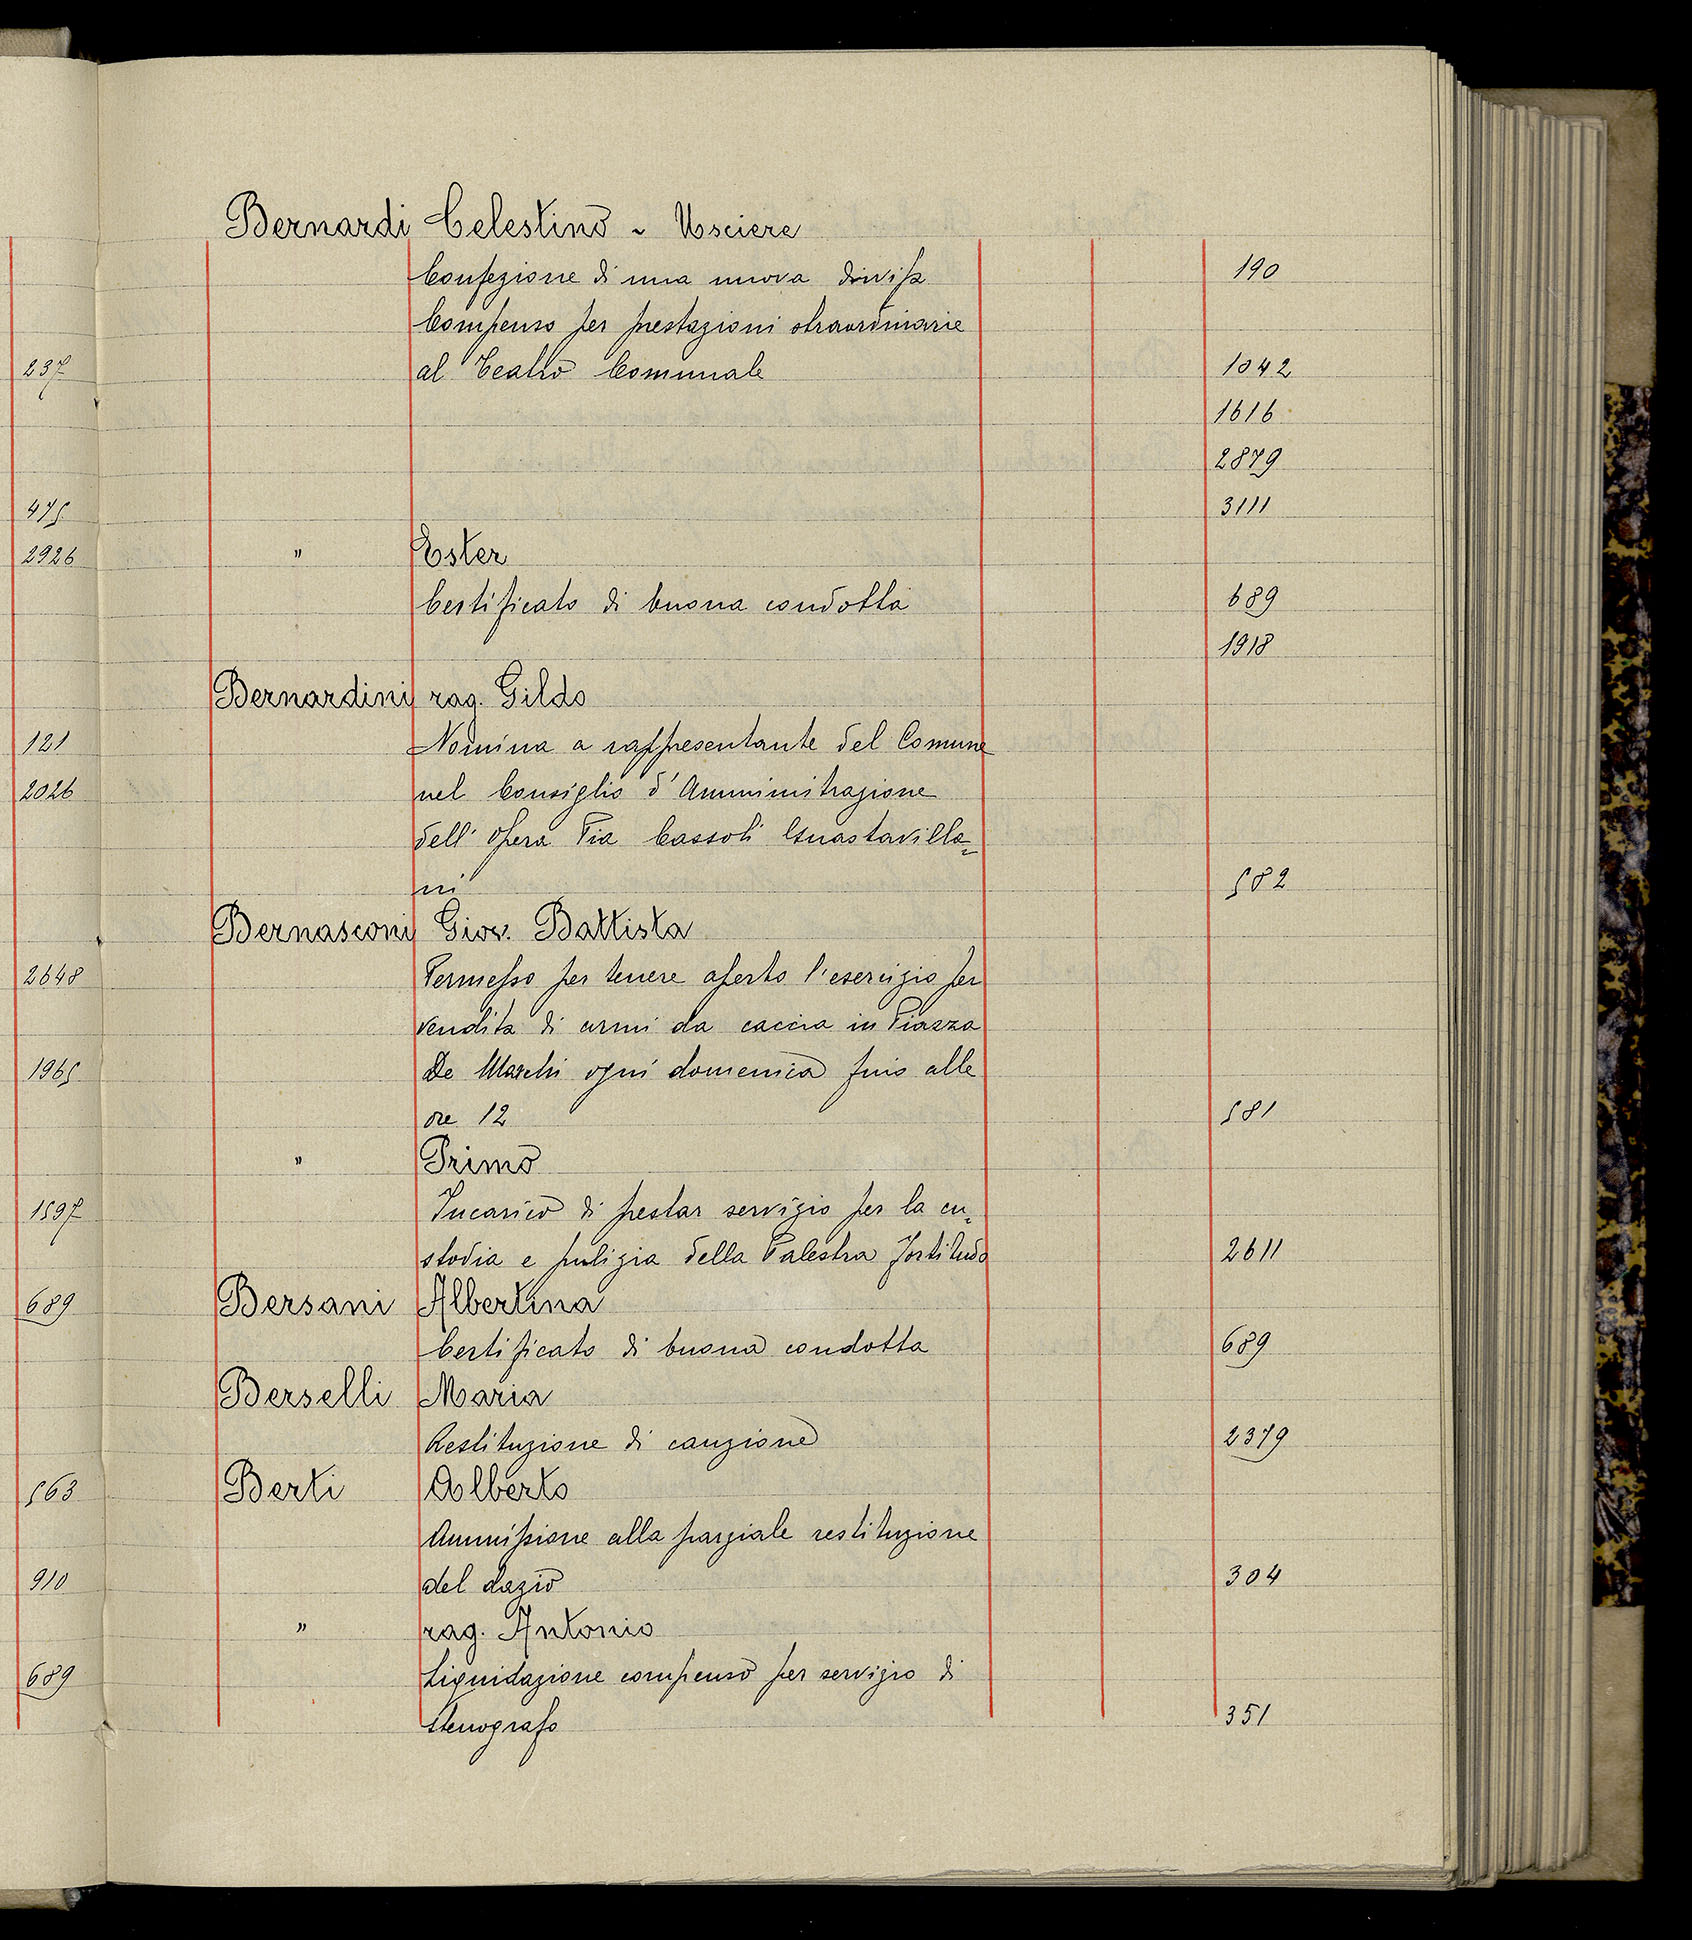 237
475
2926
121
2026
2648
1965
1597
689
563
910
689
Bernardi Celestino - Usciere
Confezione di una nuova divisa 190
Compenso per prestazioni straordinarie
al Teatro Comunale 1042
1616
2879
3111
" Ester
Certificato di buona condotta 689
1918
Bernardini rag. Gildo
Nomina a rappresentante del Comune
nel Consiglio d'Amministrazione
dell'Opera Pia Cassoli Guastavilla=
ni 582
Bernasconi Giov. Battista
Permesso per tenere aperto l'esercizio per
vendita di armi da caccia in Piazza
De Marchi ogni domenica fino alle
ore 12 581
" Primo
Incarico di prestar servizio per la cu=
stodia e pulizia della Palestra Fortitudo 2611
Bersani Albertina
Certificato di buona condotta 689
Berselli Maria
Restituzione di cauzione 2379
Berti Alberto
Ammissione alla parziale restituzione
del dazio 304
" rag. Antonio
Liquidazione compenso per servizio di
stenografo 351